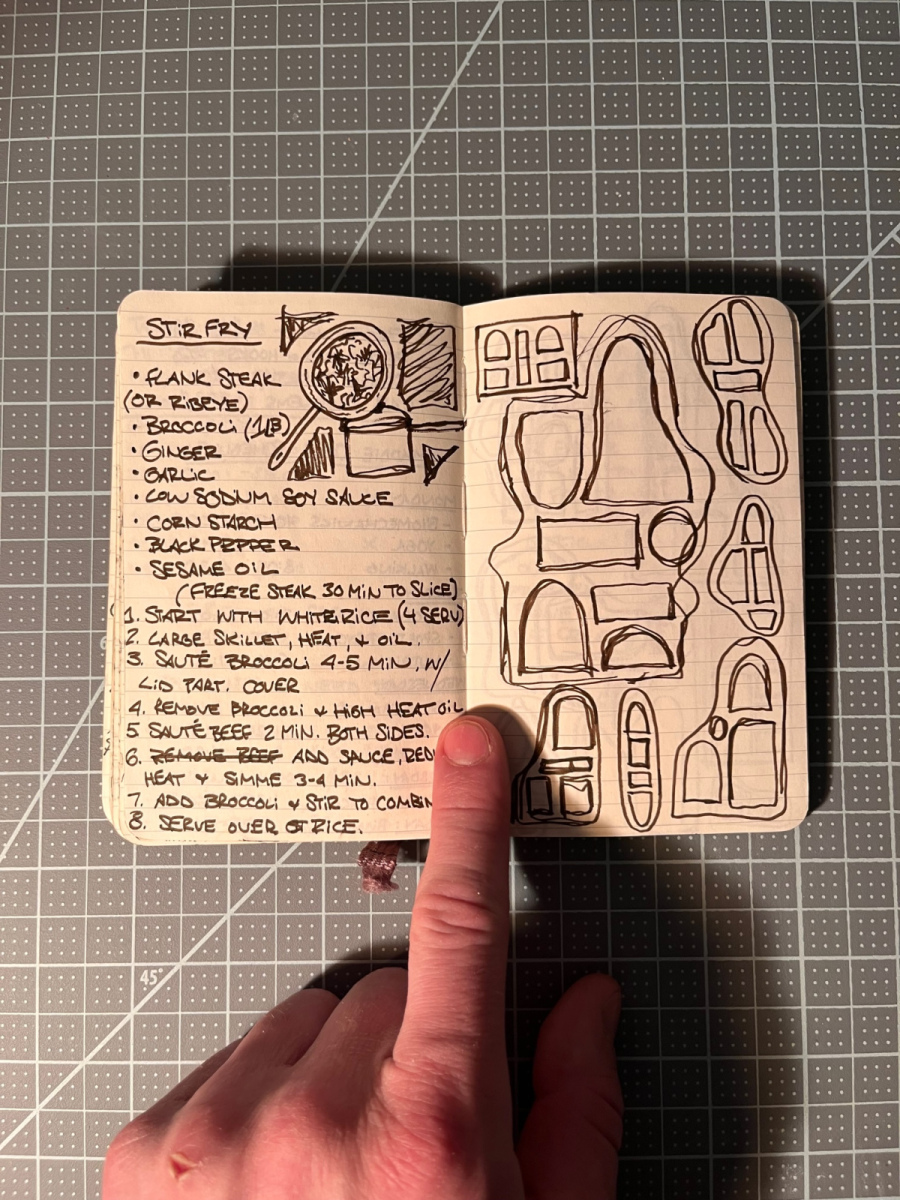 STIR FRY
• FLANK STEAK
(OR RIBEYE)
• BROCCOLI (1LB)
• GINGER
• GARLIC
• LOW SODIUM SOY SAUCE
• CORN STARCH
• BLACK PEPPER
• SESAME OIL
(FREEZE STEAK 30 MIN TO SLICE)
1. START WITH WHITE RICE (4 SERV)
2. LARGE SKILLET, HEAT, & OIL.
3. SAUTÉ BROCCOLI 4-5 MIN. W/
LID PART. COVER
4. REMOVE BROCCOLI & HIGH HEAT OIL
5. SAUTÉ BEEF 2 MIN. BOTH SIDES.
6. REMOVE BEEF ADD SAUCE,
HEAT & SIMME 3-4 MIN.
7. ADD BROCCOLI & STIR TO COMBIN
8. SERVE OVER RICE.
45°